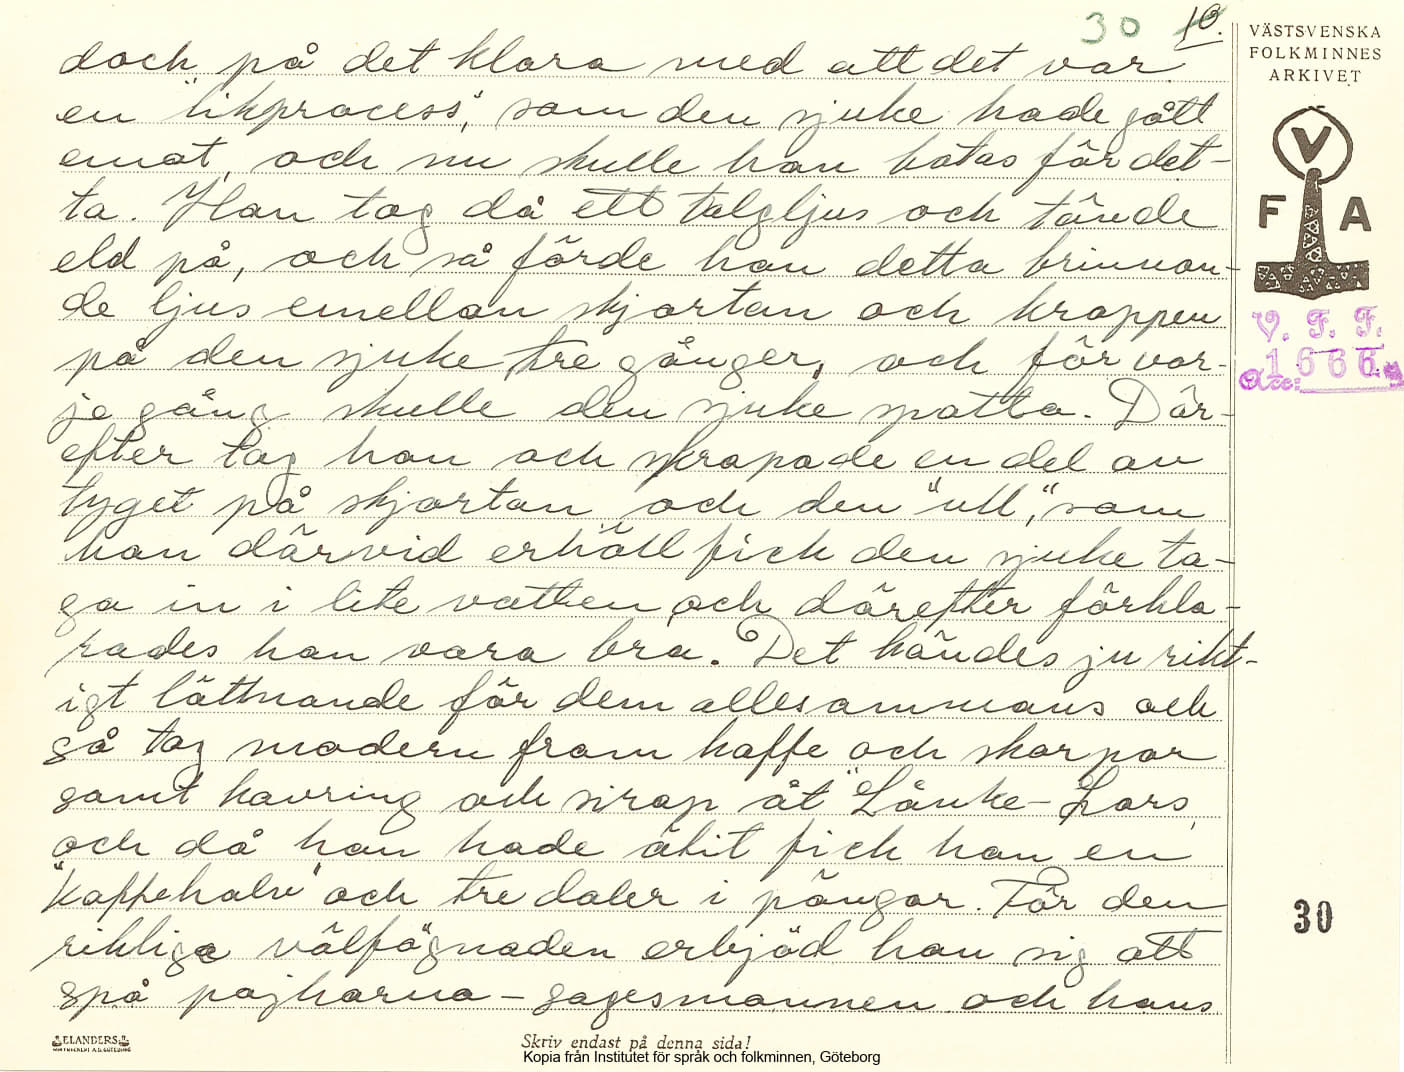 30 10.
VÄSTSVENSKA
FOLKMINNES
ARKIVET
V
F A
V. F. F.
Acc: 1666
doch på det klara med att det var
en "likprocess", som den sjuke hade gått
emot, och nu skulle han botas för det-
ta. Han tog då ett talgljus och tände
eld på, och så förde han detta brinnan-
de ljus emellan skjortan och kroppen
på den sjuke tre gånger, och för var-
je gång skulle den sjuke spotta. Där-
efter tog han och skrapade en del av
tyget på skjortan och den "ull", som
han därvid erhöll fick den sjuke ta-
ga in i lite vatten och därefter förkla-
rades han vara bra. Det kändes ju rikt-
igt lättnande för dem allesammans och
så tog modern fram kaffe och skorpor
samt kavring och sirap åt "Lånke-Lars,
och då han hade ätit fick han en
"kaffehalv" och tre daler i pängar. För den
rikliga välfägnaden erbjöd han sig att
spå pojkarna – sagesmannen och hans
30
ELANDERS
Skriv endast på denna sida!
Kopia från Institutet för språk och folkminnen, Göteborg